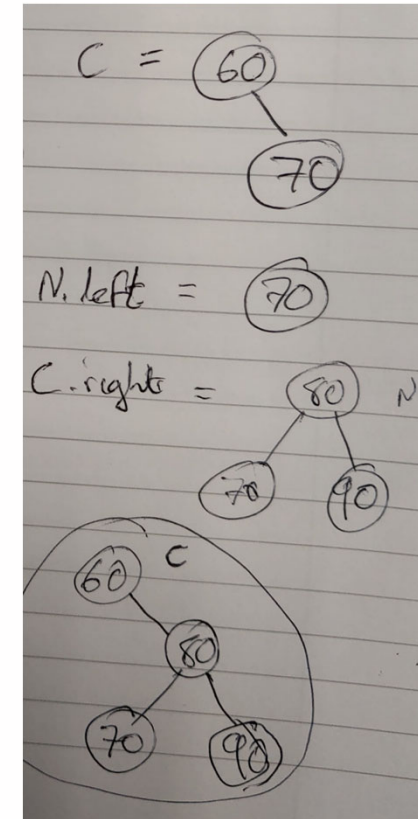 C = 60
70
N.left = 70
C.right = 80 N
70 90
60 C
80
70 90